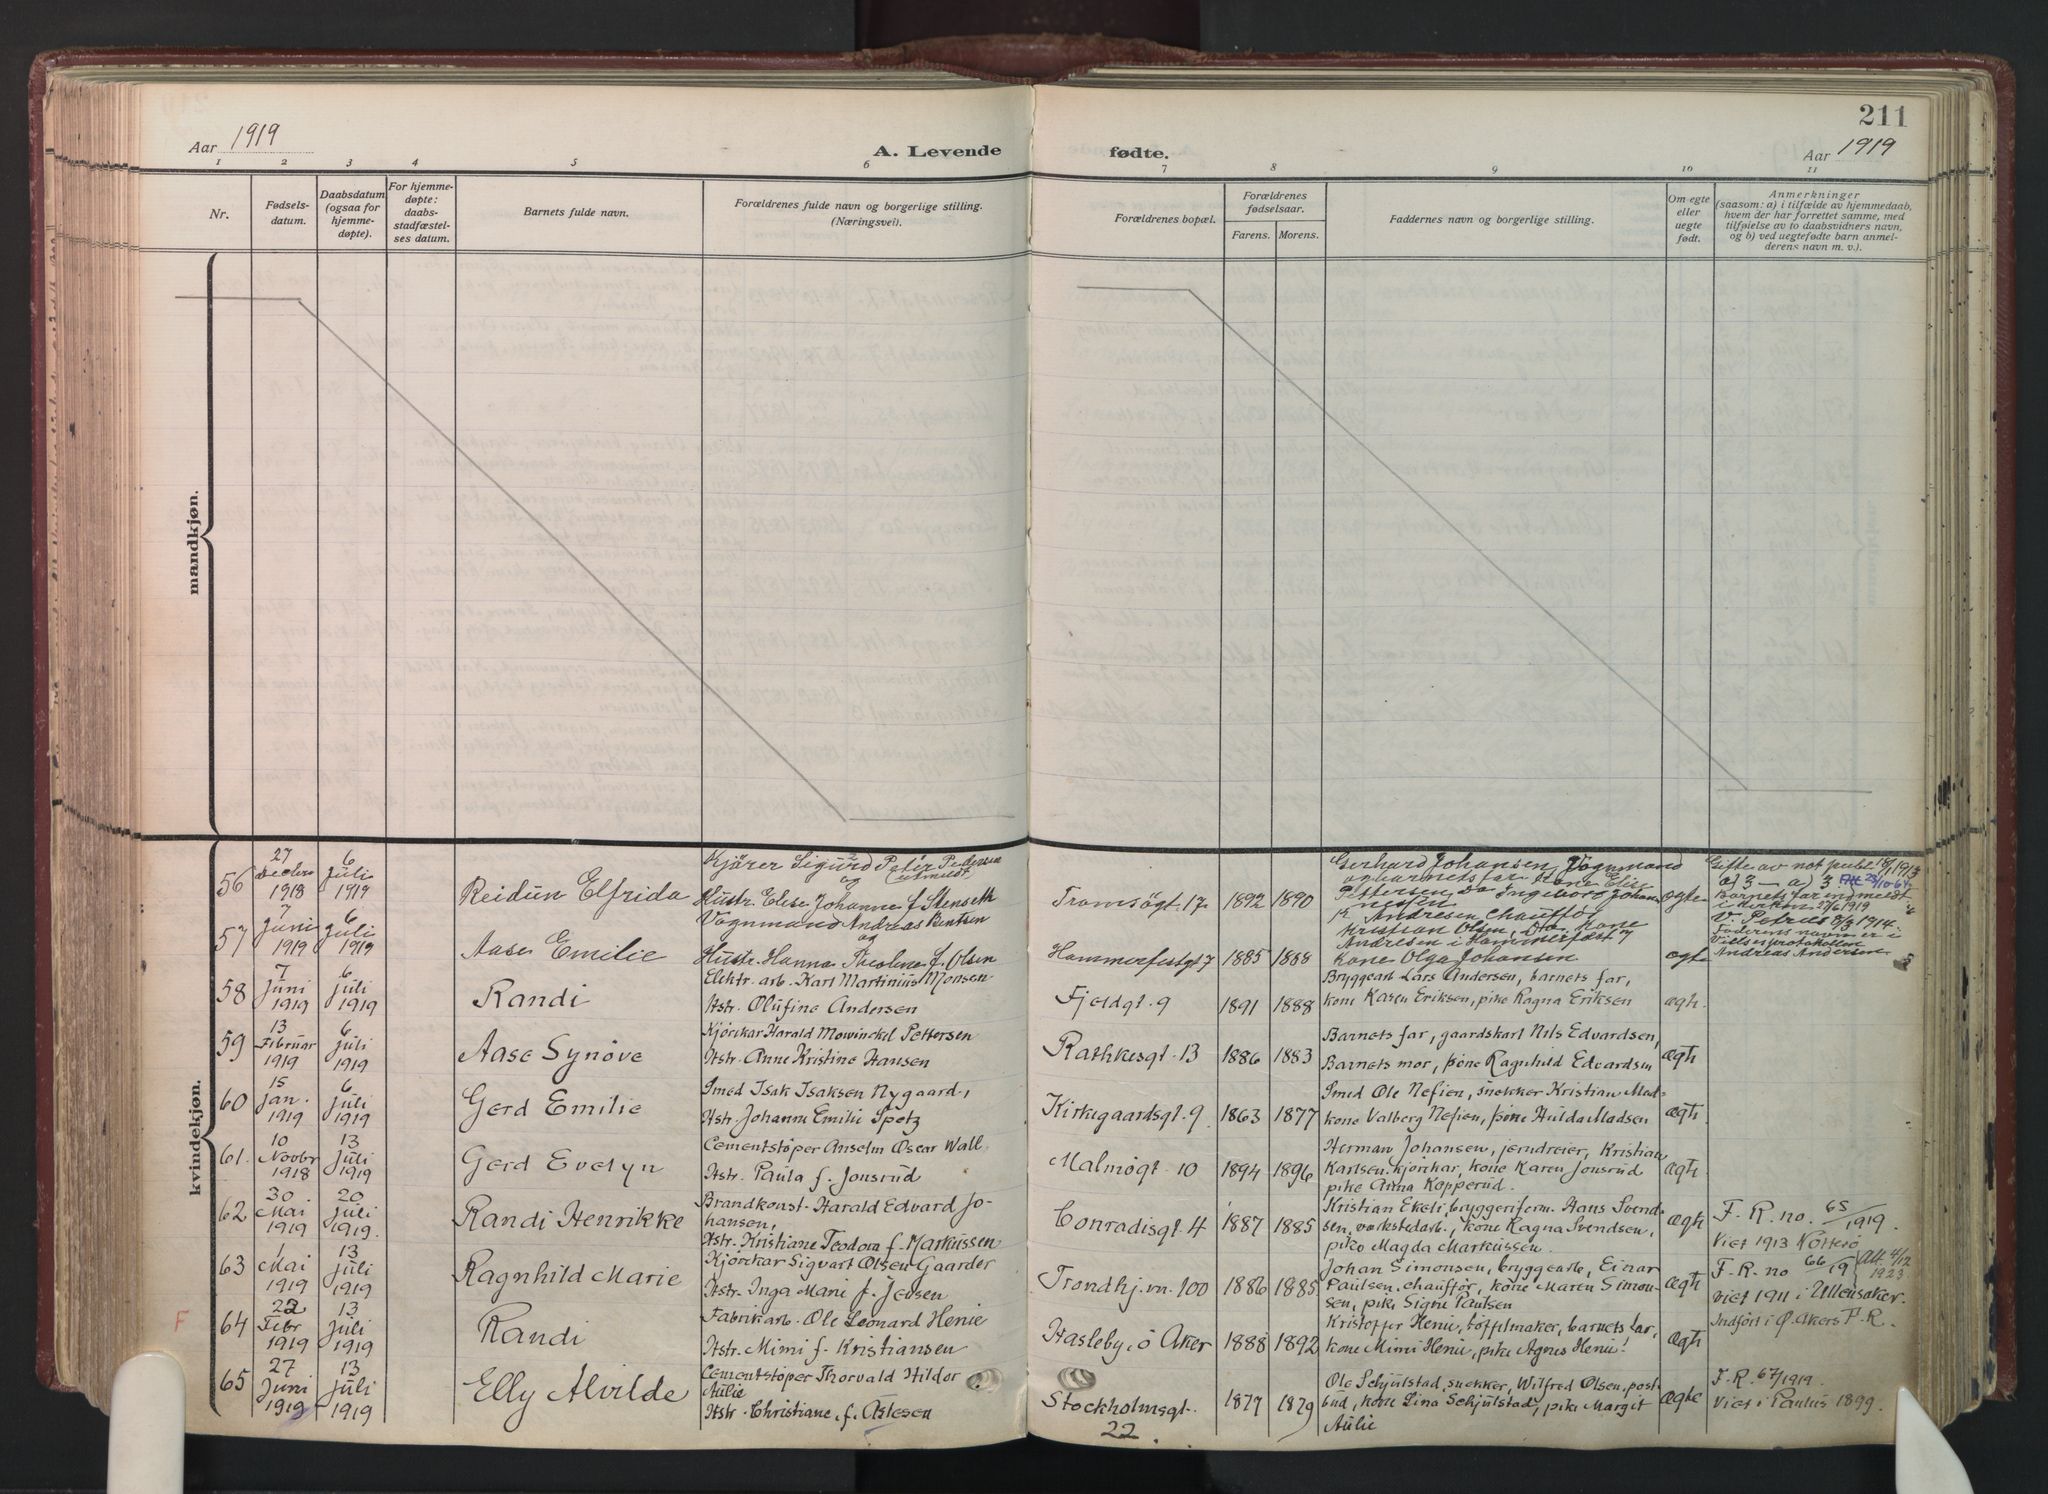 211
Aar 1919
A. Levende fødte.
Aar 1919
1 2 3 4 5 6 7 8 9 10 11
Nr.
Fødsels-
datum.
Daabsdatum
(ogsaa for
hjemme-
døpte).
For hjemme-
døpte:
daabs-
stadfæstel-
ses datum.
Barnets fulde navn.
Forældrenes fulde navn og borgerlige stilling.
(Næringsvei).
Forældrenes bopæl.
Forældrenes
fødselsaar.
Farens. Morens.
Faddernes navn og borgerlige stilling.
Om egte
eller
uegte
født.
Anmerkninger
(saasom: a) i tilfælde av hjemmedaab,
hvem der har forrettet samme, med
tilføielse av to daabsvidners navn,
og b) ved uegtefødte barn anmel-
derens navn m. v.).
mandkjøn.
kvindekjøn.
56
27
Decbr
1918
6
Juli
1919
Reidun Elfrida
Kjører Sigurd Peter Pedersen
og
Hustr. Elise Johanne f. Stenseth
Tromsøgt. 17
1892 1890
Gerhard Johansen, Vognmand
og barnets far, Kone Elise
Pettersen, Do Ingeborg Johan-
nessen
ægte
Gifte av not publ 18/1 1913
a) 3 — a) 3 Att 23/10-64
Barnets far indmeldt
i kirken 27/6 1919
57
7
Juni
1919
6
Juli
1919
Aase Emilie
Vognmand Andreas Bentsen
og
Hustr. Hanna Nicoline f. Olsen
Hammerfestgt 7
1885 1888
K. Andresen Chauffør
Kristian Olsen, Do, Kone
Andresen i Hammerfestg
Kone Olga Johansen
ægte
V. Petrus 8/3 1914.
Faderens navn er i
Vielsesprotokollen
Andreas Andersen
58
7
Juni
1919
6
Juli
1919
Randi
Elektr. arb. Karl Martinius Monsen
Hstr. Olufine Andersen
Fjeldgt. 9
1891 1888
Bryggearb Lars Andersen, barnets far,
kone Karen Eriksen, pike Ragna Eriksen
ægth.
59
13
Februar
1919
6
Juli
1919
Aase Synøve
Kjørekar Harald Mowinckel Pettersen
Hstr. Anne Kristine Hansen
Rathkesgt. 13
1886 1883
Barnets far, gaardskarl Nils Edvardsen,
Barnets mor, kone Ragnhild Edvardsen
ægth
60
15
Jan.
1919
6
Juli
1919
Gerd Emilie
Smed Isak Isaksen Nygaard,
Hstr. Johanne Emilie Spetz
Kirkegaardsgt. 9
1863 1877
Smed Ole Nefien, snekker Kristian Mad-
kone Valberg Nefien, kone Hulda Madsen
ægth
61.
10
Novbr
1918
13
Juli
1919
Gerd Evelyn
Cementstøper Anselm Oscar Wall
Hstr. Paula f. Jonsrud
Malmøgt. 10
1894 1896
Herman Johansen, jerndreier, Kristian
Karlsen, kjørkar, kone Karen Jonsrud
pike Anna Kopperud.
ægth
62
30.
Mai
1919
20
Juli
1919.
Randi Henrikke
Brandkonst. Harald Edvard Jo-
hansen,
Hstr. Kristiane Teodora f. Markussen
Conradisgt. 4
1887 1885
Kristian Ekeli, bryggeriform. Hans Svend-
sen, værkstedarb., kone Ragna Svendsen,
pike Magda Markussen.
ægth
F. R. no. 65/1919.
Viet 1913 Notterø
63
1
Mai
1919
13
Juli
1919
Ragnhild Marie
Kjørekar Sigvart Olsen Gaarder
Hstr. Inga Marie f. Jensen
Trondhj.vn. 100
1886 1885
Johan Simonsen, bryggearb, Einar
Paulsen, chauffør, kone Maren Simon-
sen, pike Signe Paulsen
ægth
F. R. no 66/19
Att 4/12
1923
viet 1911 i Ullensaker.
F
64
22
Febr
1919
13
Juli
1919
Randi
Fabrikarb. Ole Leonard Henie
Hstr. Mimi f. Kristiansen
Hasleby, Ø Aker
1888 1892
Kristoffer Henie, tøffelmaker, barnets far,
kone Mimi Henie, pike Agnes Henie!
ægth
Indført i Ø. Akers F. R.
65
27
Juni
1919
13
Juli
1919
Elly Alvilde
Cementstøper Thorvald Hildor
Aulie
Hstr. Christiane, f. Åslesen
Stockholmsgt.
22.
1877 1879
Ole Schjulstad, snekker, Wilfred Olsen, post-
bud, kone Lina Schjulstad, pike Margit
Aulie
ægte
F. R. 67/1919.
Viet i Paulus 1899.